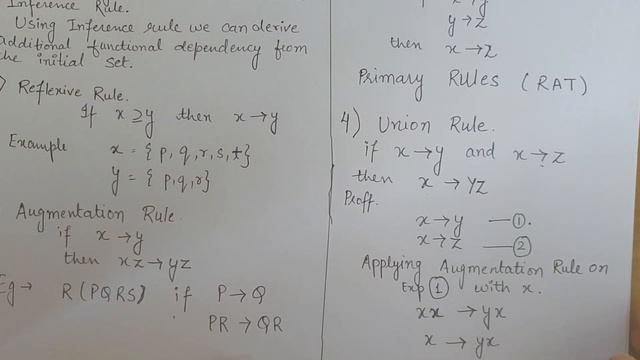 Inference Rule.
Using Inference rule we can derive
additional functional dependency from
the initial set.
) Reflexive Rule.
If x ≥ y then x → y
Example x = {p, q, r, s, t}
y = {p, q, r}
Augmentation Rule.
if x → y
then xz → yz
Eg → R (PQRS) if P → Q
PR → QR
y → z
then x → z
Primary Rules (RAT)
4) Union Rule.
if x → y and x → z
then x → YZ
Proff.
x → y — ①.
x → z — ②
Applying Augmentation Rule on
Exp ① with x.
xx → yx
x → yx